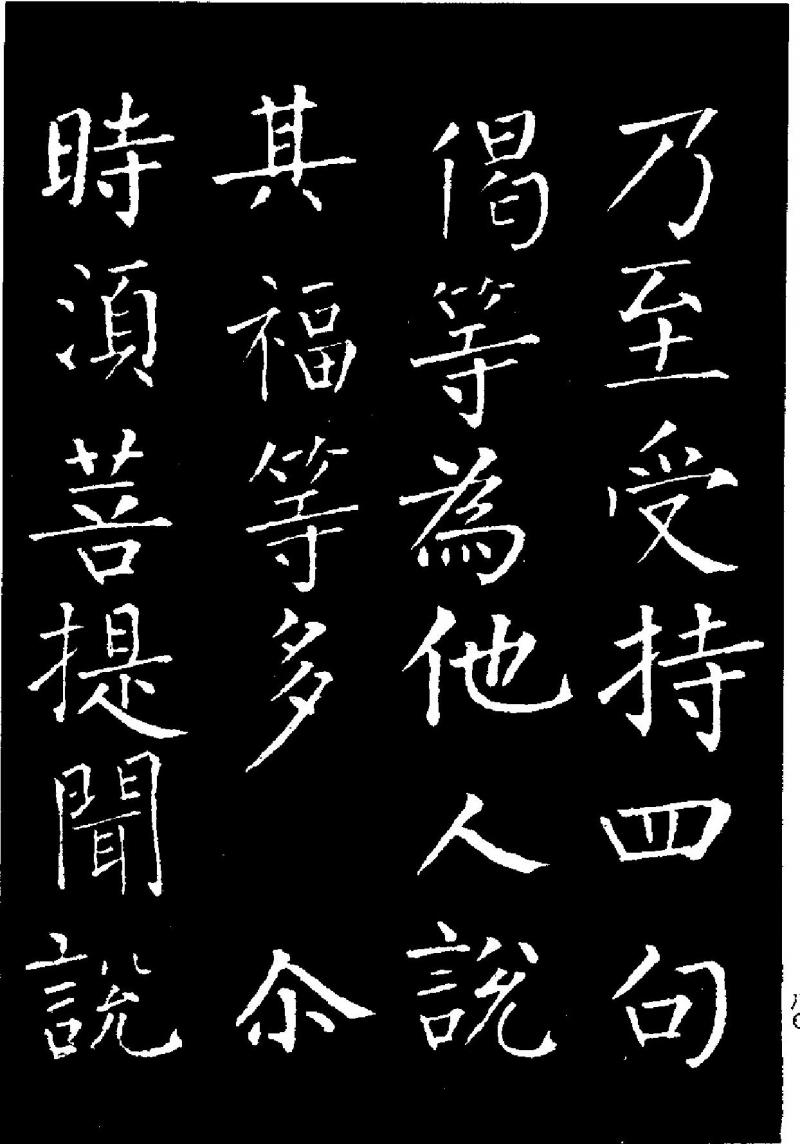 乃至受持四句
偈等為他人說
其福甚多 尒
時須菩提聞說